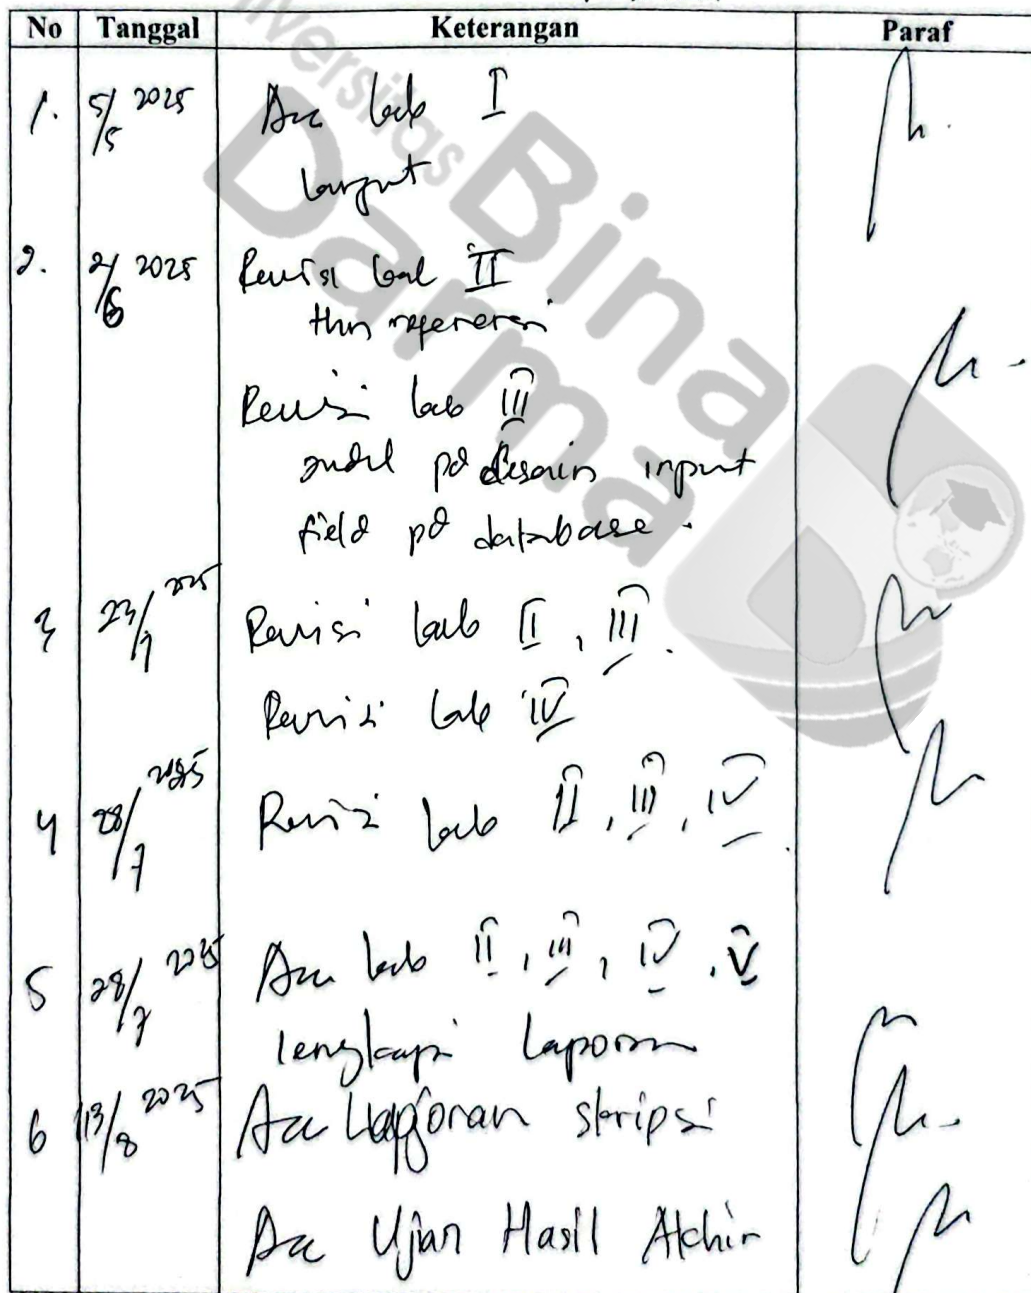 No Tanggal Keterangan Paraf
Universitas
Bina
Darma
1. 5/5 2025 Acc bab I
lanjut
2. 2/6 2025 Revisi bab II
thn referensi
Revisi bab III
pd desain input
field pd database.
3 23/7 2025 Revisi bab II, III.
Revisi bab IV
4 28/7 2025 Revisi bab II, III, IV.
5 28/7 2025 Acc bab II, III, IV, V
lengkapi Laporan
6 13/8 2025 Acc Laporan skripsi
Acc Ujian Hasil Akhir